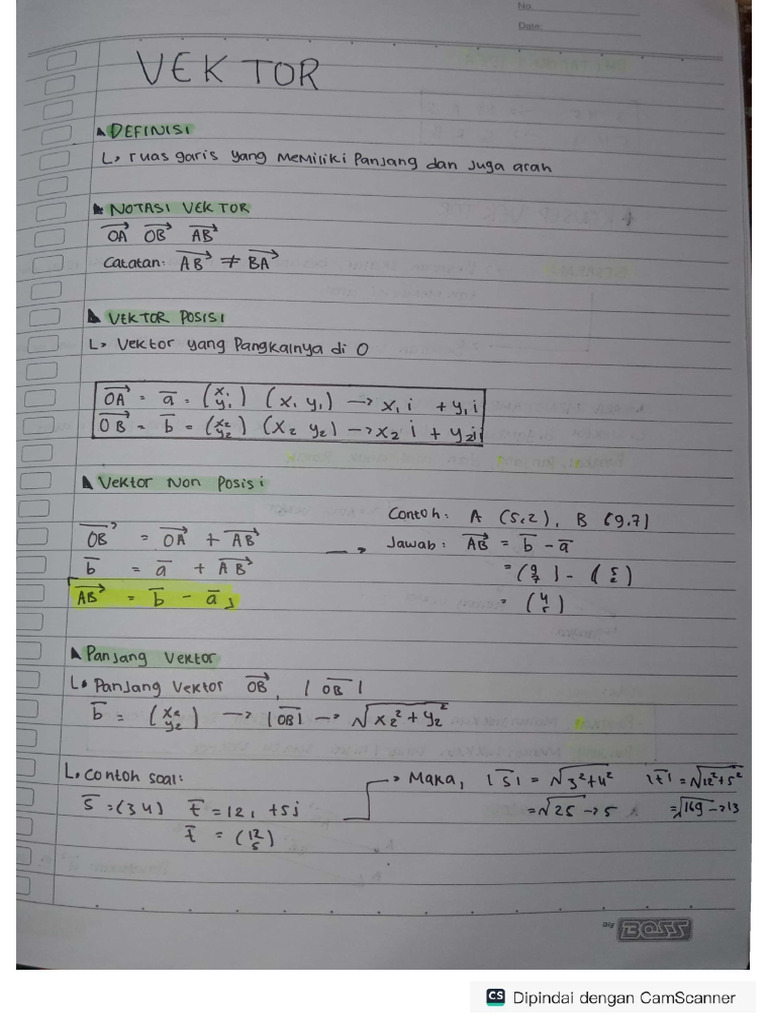 No.
Date:
VEKTOR
DEFINISI
L, ruas garis yang memiliki panjang dan juga arah
NOTASI VEKTOR
OA OB AB
Catatan: AB ≠ BA
VEKTOR POSISI
L, Vektor yang Pangkalnya di O
OA = a = (x₁ y₁) (x₁ y₁) → x₁i + y₁i
OB = b = (x₂ y₂) (x₂ y₂) → x₂i + y₂j
Vektor Non Posisi
OB = OA + AB
b = a + AB
AB = b - a
Contoh: A (5,2), B (9,7)
→ Jawab: AB = b - a
= (9 7) - (5 2)
= (4 5)
Panjang Vektor
L. Panjang Vektor OB, |OB|
b = (x₂ y₂) → |OB| → √x₂² + y₂²
L. Contoh soal:
s = (3 4) t = 12i + 5j
t = (12 5)
→ Maka, |s| = √3²+4² |t| = √12²+5²
= √25 → 5 = √169 → 13
BOSS
CS Dipindai dengan CamScanner